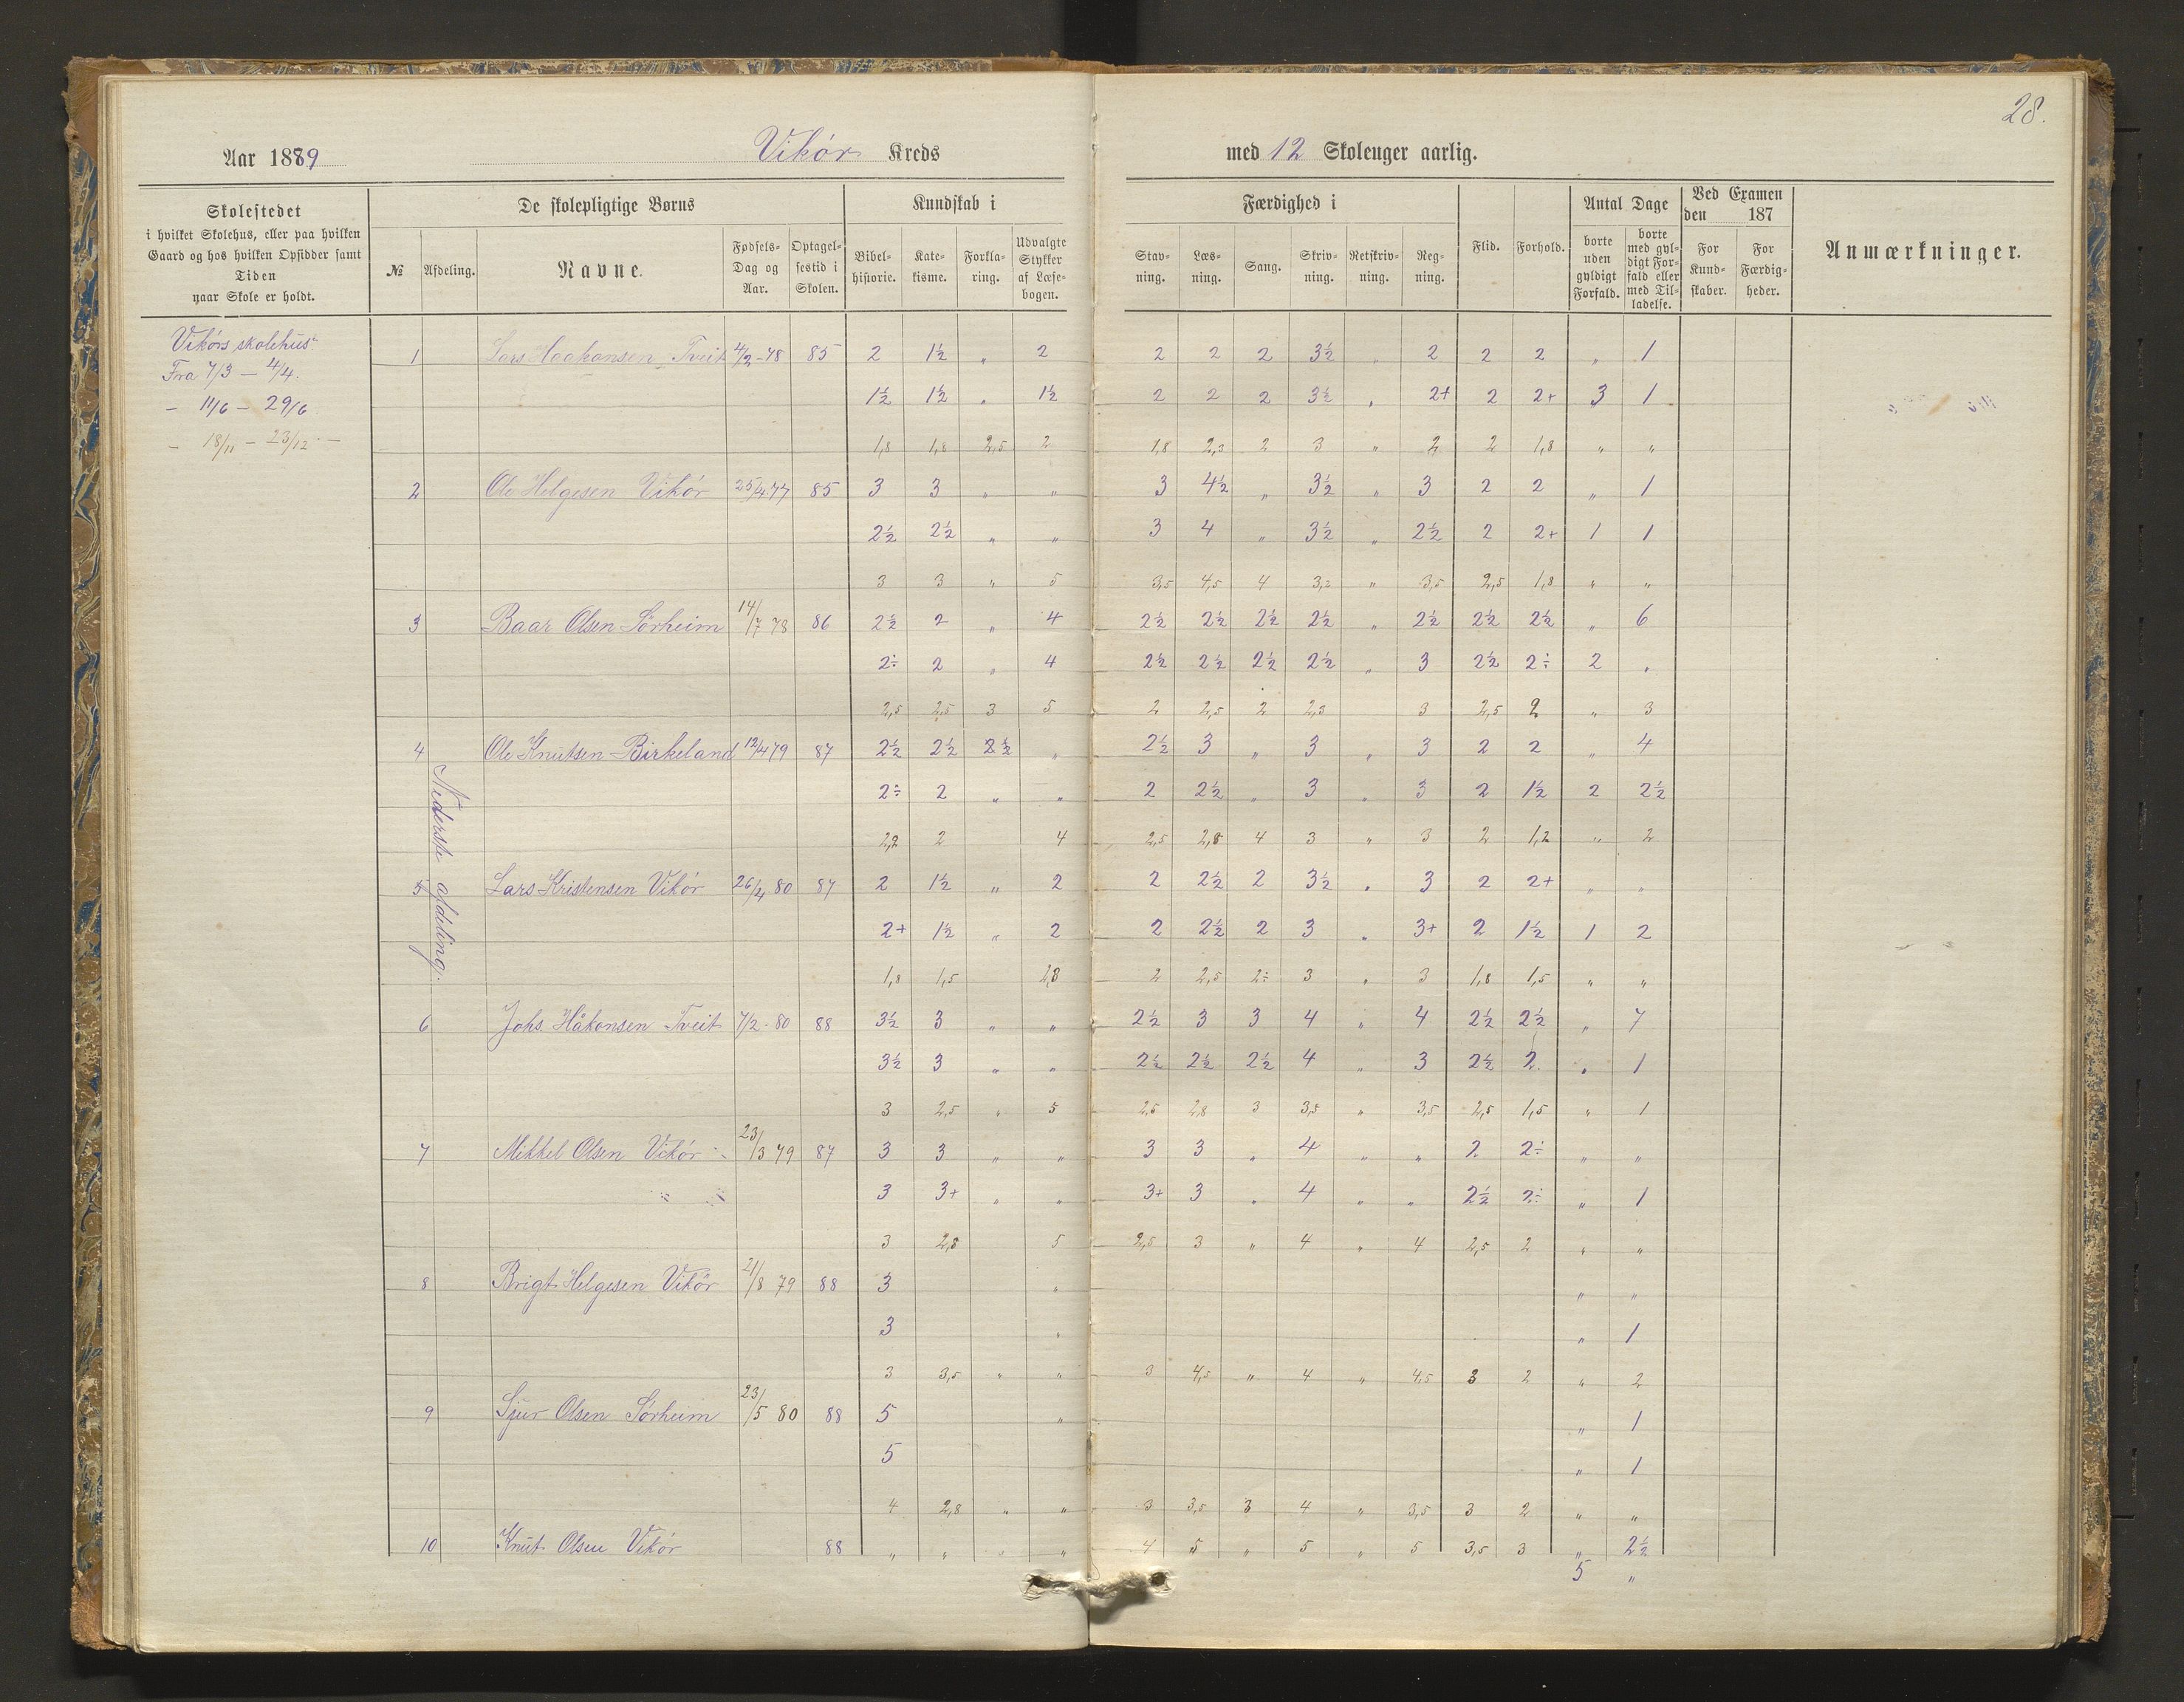 28.
Aar 1889 Vikör Kreds med 12 Skolenger aarlig.
Skolestedet
i hvilket Skolehus, eller paa hvilken
Gaard og hos hvilken Opsidder samt
Tiden
naar Skole er holdt.
De skolepligtige Børns
№ Afdeling. Navne. Fødsels-Dag og Aar. Optagelsestid i Skolen.
Kundskab i
Bibelhistorie. Katekisme. Forklaring. Udvalgte Stykker af Læsebogen.
Færdighed i
Stavning. Læsning. Sang. Skrivning. Retskrivning. Regning.
Flid. Forhold.
Antal Dage
borte uden gyldigt Forfald. borte med gyldigt Forfald eller med Tilladelse.
Ved Examen den 187
For Kundskaber. For Færdigheder.
Anmærkninger.
Vikörs skolehus
Fra 7/3 — 4/4.
— 11/6 — 29/6
— 18/11 — 23/12 —
Nederste afdeling.
1 Lars Haakonsen Tveit 4/2-78 85 2 1½ „ 2 2 2 2 3½ „ 2 2 2 „ 1
1½ 1½ „ 1½ 2 2 2 3½ „ 2+ 2 2+ 3 1
1,8 1,8 2,5 2 1,8 2,3 2 3 „ 2 2 1,8 „ „
2 Ole Helgesen Vikör 25/4 77 85 3 3 „ „ 3 4½ „ 3½ „ 3 2 2 „ 1
2½ 2½ „ „ 3 4 „ 3½ „ 2½ 2 2+ 1 1
3 3 „ 5 3,5 4,5 4 3,2 „ 3,5 2,5 1,8 „ „
3 Baar Olsen Sörheim 14/7 78 86 2½ 2 „ 4 2½ 2½ 2½ 2½ „ 2½ 2½ 2½ „ 6
2÷ 2 „ 4 2½ 2½ 2½ 2½ „ 3 2½ 2÷ 2 „
2,5 2,5 3 5 2 2,5 2 2,3 3 2,5 2 „ 3
4 Ole Knutsen Birkeland 12/4 79 87 2½ 2½ 2½ „ 2½ 3 „ 3 „ 3 2 2 „ 4
2÷ 2 „ „ 2 2½ „ 3 „ 3 2 1½ 2 2½
2,2 2 4 2,5 2,8 4 3 „ 3 2 1,2 „ 2
5 Lars Kristensen Vikör 26/4 80 87 2 1½ „ 2 2 2½ 2 3½ „ 3 2 2+ „ „
2+ 1½ „ 2 2 2½ 2 3 „ 3+ 2 1½ 1 2
1,8 1,5 2,3 2 2,5 2÷ 3 „ 3 1,8 1,5 „ „
6 Johs Håkonsen Tveit 7/2-80 88 3½ 3 „ „ 2½ 3 3 4 „ 4 2½ 2½ „ 7
3½ 3 „ „ 2½ 2½ 2½ 4 „ 3 2½ 2 „ 1
3 2,5 „ 5 2,5 2,8 3 3,5 „ 3,5 2,5 1,5 „ 1
7 Mikkel Olsen Vikör 23/3 79 87 3 3 „ „ 3 3 „ 4 „ „ 2 2÷ „ „
3 3+ „ „ 3+ 3 „ 4 „ „ 2½ 2÷ „ 1
3 2,8 5 2,5 3 „ 4 „ 4 2,5 2 „ „
8 Brigt Helgesen Vikör 21/8 79 88 3 „ „ „
3 „ „ 1
3 3,5 „ „ 3 4,5 „ 4 „ 4,5 3 2 „ 2
9 Sjur Olsen Sörheim 23/5 80 88 5 „ „ 1
5 „ 1
4 2,8 „ „ 3 3,5 3 4 „ 3,5 3 2 „ „
10 Knut Olsen Vikör 88 „ „ „ „ 4 5 „ 5 „ 5 3,5 3 „ 2½
5 „